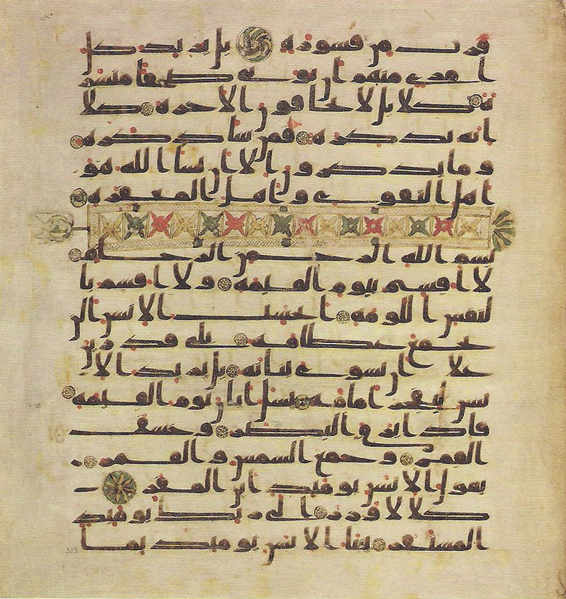 فرت من قسورة بل يريد كل
امرئ منهم ان يوتى صحفا منشر
ة كلا بل لا يخافون الاخرة كلا
انه تذكرة فمن شا ذكره
وما يذكرون الا ان يشا الله هو
اهل التقوى و اهل المغفرة
بسم الله الرحمن الرحيم
لا اقسم بيوم القيمة ولا اقسم با
لنفس اللومة ايحسب الانسن الن
نجمع عظامه بلى قدرين
على ان نسوى بنانه بل يريد الا
نسن ليفجر امامه يسل ايان يوم القيمة
فاذا برق البصر وخسف
القمر وجمع الشمس والقمر
يقول الانسن يومئذ اين المفر
كلا لا وزر الى ربك يومئذ
المستقر ينبا الانسن يومئذ بما